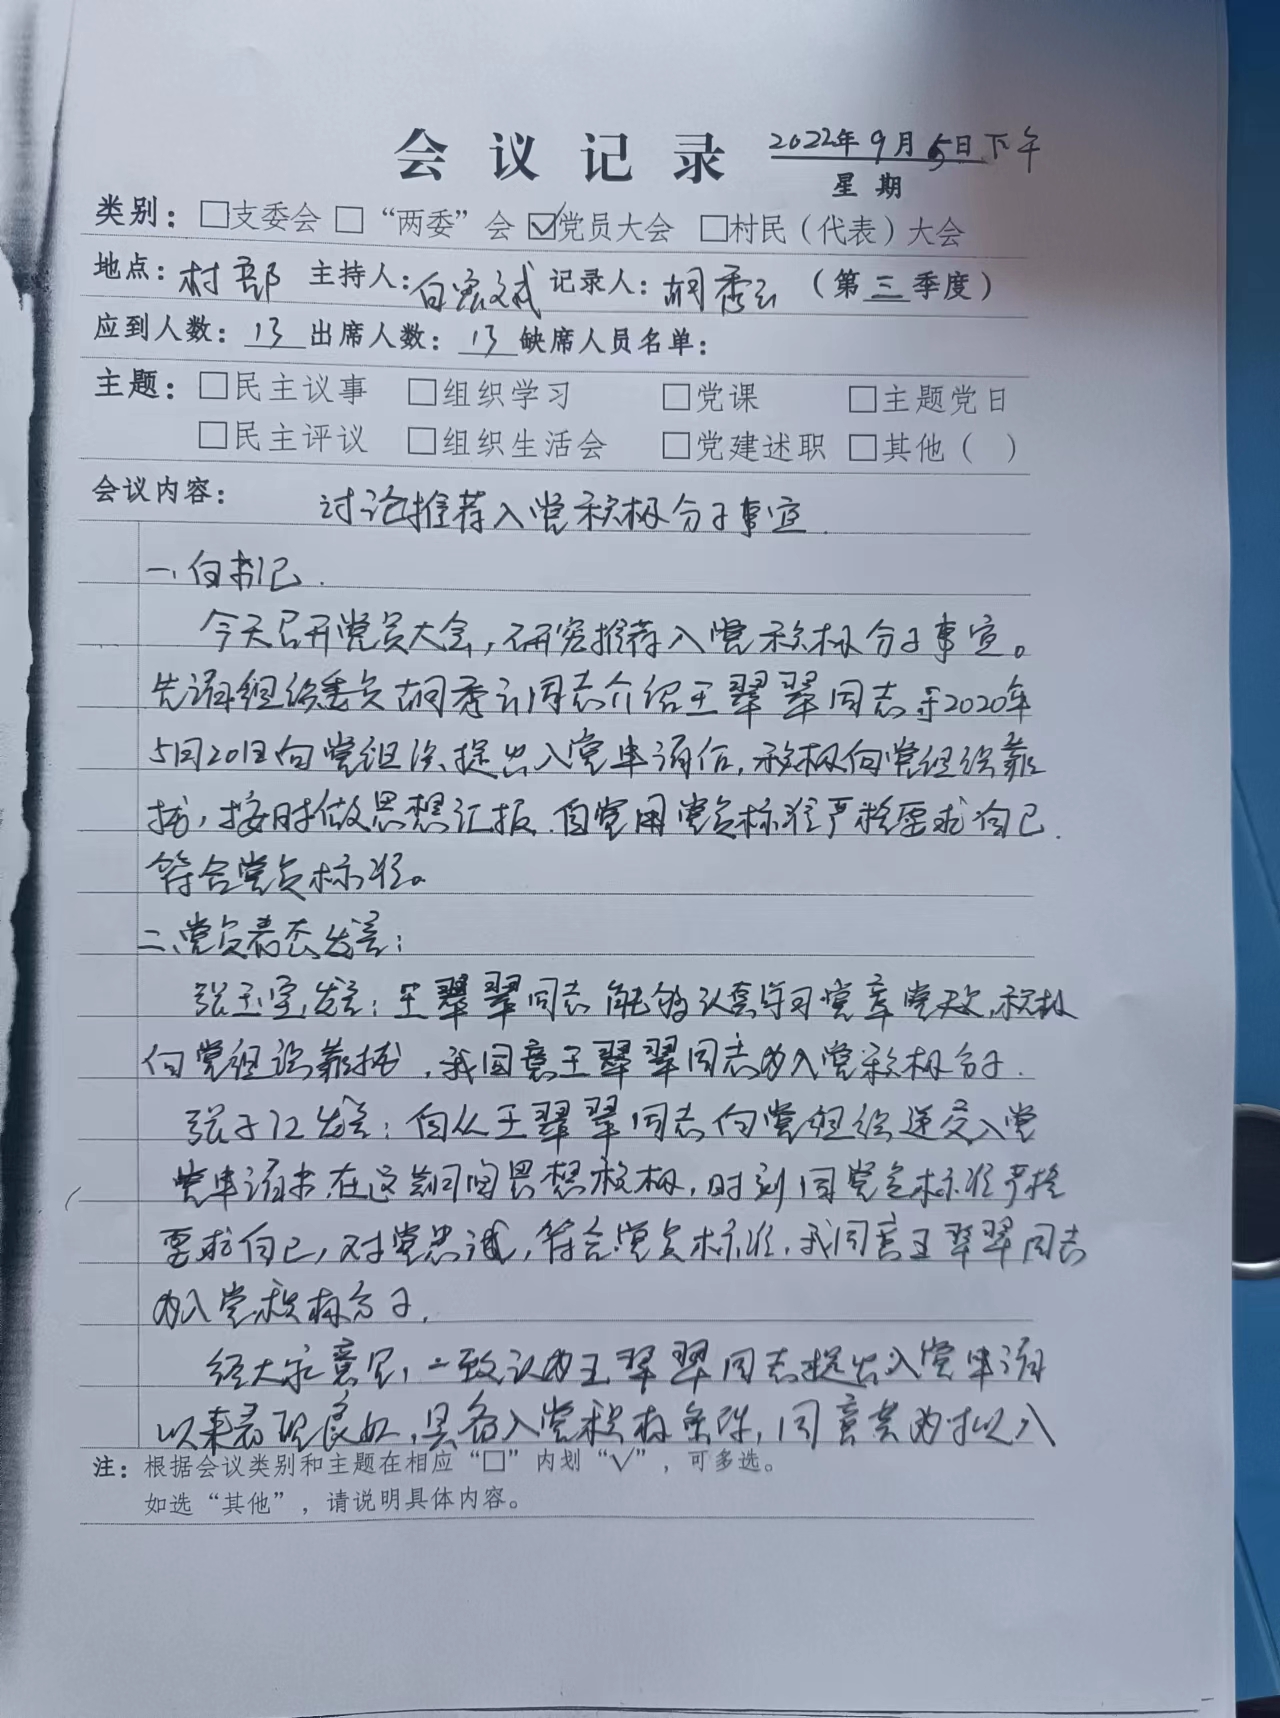 会议记录 2022年9月5日下午
星期
类别：□支委会 □“两委”会 ☑党员大会 □村民（代表）大会
地点：村部 主持人：白宏斌 记录人：胡秀云（第三季度）
应到人数：13 出席人数：13 缺席人员名单：
主题：□民主议事 □组织学习 □党课 □主题党日
□民主评议 □组织生活会 □党建述职 □其他（ ）
会议内容： 讨论推荐入党积极分子事宜.
一、白书记.
今天召开党员大会，研究推荐入党积极分子事宜。
先请组织委员胡秀云同志介绍王翠翠同志于2020年
5月20日向党组织提出入党申请后，积极向党组织靠
拢，按时做思想汇报.自觉用党员标准严格要求自己.
符合党员标准。
二、党员表态发言：
张玉宝发言：王翠翠同志能够认真学习党章党规，积极
向党组织靠拢，我同意王翠翠同志为入党积极分子.
张子江发言：自从王翠翠同志向党组织递交入党
党申请书.在这期间思想积极，时刻同党员标准严格
要求自己，对党忠诚，符合党员标准，我同意王翠翠同志
为入党积极分子.
经大家意见，一致认为王翠翠同志提出入党申请
以来表现良好，具备入党积极条件，同意其为拟入
注：根据会议类别和主题在相应“□”内划“√”，可多选。
如选“其他”，请说明具体内容。